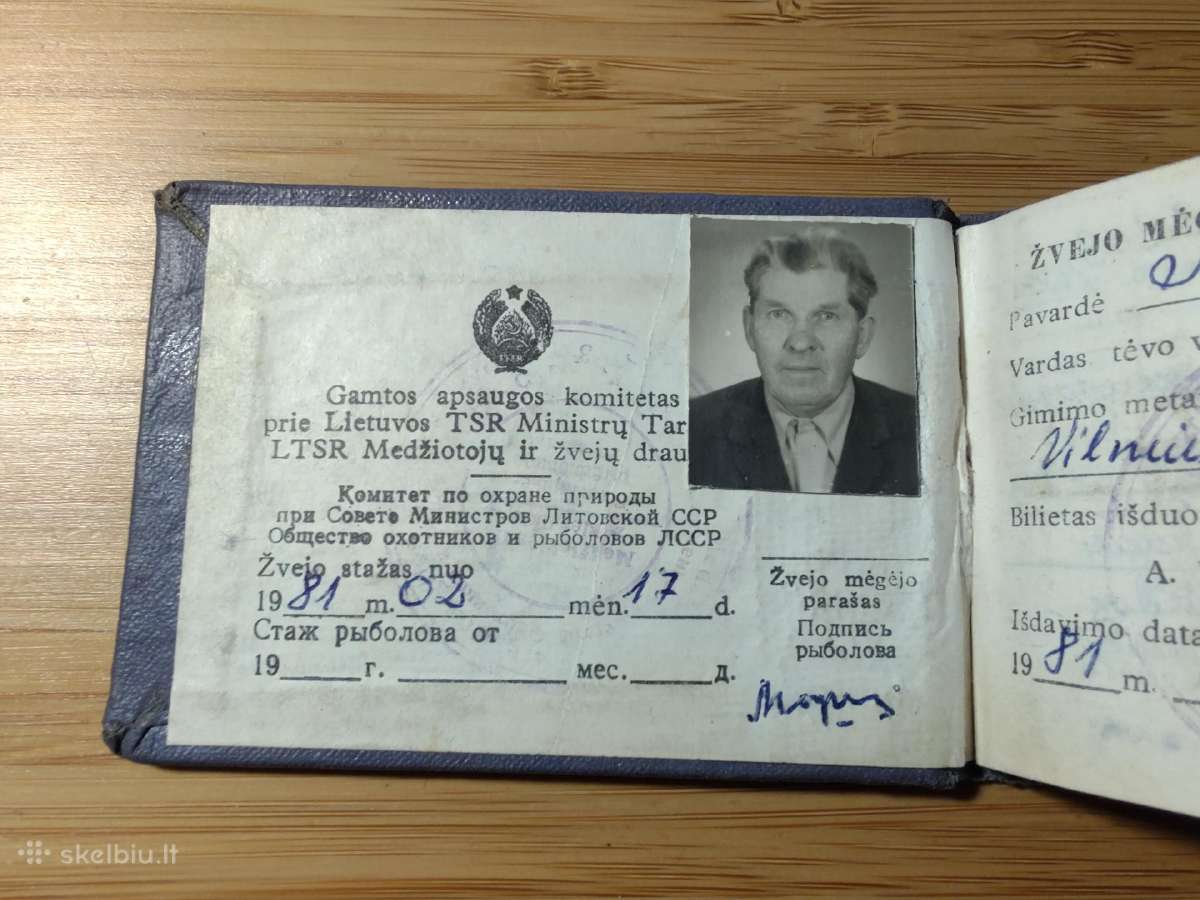 Gamtos apsaugos komitetas
prie Lietuvos TSR Ministrų Tar
LTSR Medžiotojų ir žvejų drau
Комитет по охране природы
при Совете Министров Литовской ССР
Общество охотников и рыболовов ЛССР
Žvejo stažas nuo
1981 m. 02 mėn. 17 d.
Стаж рыболова от
19 г. мес. д.
Žvejo mėgėjo
parašas
Подпись
рыболова
ŽVEJO MĖG
Pavardė
Vardas tėvo v
Gimimo meta
Vilniu
Bilietas išduo
A.
Išdavimo data
1981 m.
skelbiu.lt